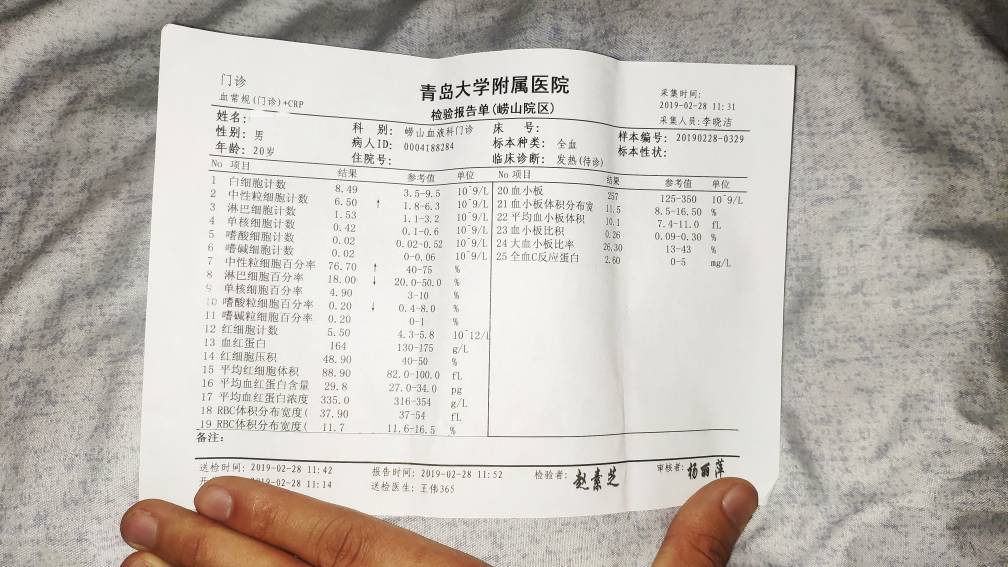 门诊
血常规(门诊)+CRP
青岛大学附属医院
检验报告单(崂山院区)
采集时间:
2019-02-28 11:31
采集人员:李晓洁
姓名:
科 别: 崂山血液科门诊
床 号:
样本编号: 20190228-0329
性别: 男
病人ID: 0004188284
标本种类: 全血
标本性状:
年龄: 20岁
住院号:
临床诊断: 发热(待诊)
No 项目 结果 参考值 单位
1 白细胞计数 8.49 3.5-9.5 10^9/L
2 中性粒细胞计数 6.50 ↑ 1.8-6.3 10^9/L
3 淋巴细胞计数 1.53 1.1-3.2 10^9/L
4 单核细胞计数 0.42 0.1-0.6 10^9/L
5 嗜酸细胞计数 0.02 0.02-0.52 10^9/L
6 嗜碱细胞计数 0.02 0-0.06 10^9/L
7 中性粒细胞百分率 76.70 ↑ 40-75 %
8 淋巴细胞百分率 18.00 ↓ 20.0-50.0 %
9 单核细胞百分率 4.90 3-10 %
10 嗜酸粒细胞百分率 0.20 ↓ 0.4-8.0 %
11 嗜碱粒细胞百分率 0.20 0-1 %
12 红细胞计数 5.50 4.3-5.8 10^12/L
13 血红蛋白 164 130-175 g/L
14 红细胞压积 48.90 40-50 %
15 平均红细胞体积 88.90 82.0-100.0 fL
16 平均血红蛋白含量 29.8 27.0-34.0 pg
17 平均血红蛋白浓度 335.0 316-354 g/L
18 RBC体积分布宽度( 37.90 37-54 fL
19 RBC体积分布宽度( 11.7 11.6-16.5 %
No 项目 结果 参考值 单位
20 血小板 257 125-350 10^9/L
21 血小板体积分布宽 11.5 8.5-16.50 %
22 平均血小板体积 10.1 7.4-11.0 fL
23 血小板比积 0.26 0.09-0.30 %
24 大血小板比率 26.30 13-43 %
25 全血C反应蛋白 2.60 0-5 mg/L
备注:
送检时间: 2019-02-28 11:42
报告时间: 2019-02-28 11:52
检验者: 赵素芝
审核者: 杨丽萍
开 2019-02-28 11:14
送检医生: 王伟365